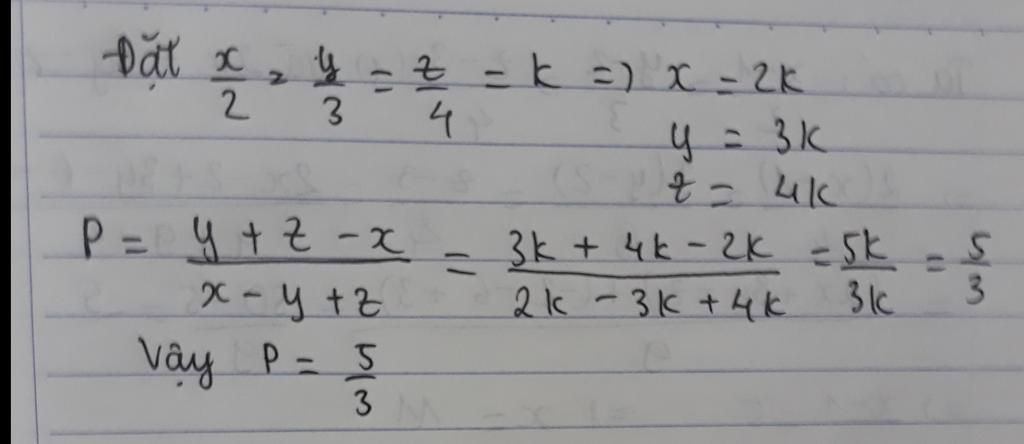 Đặt x/2 = y/3 = z/4 = k => x = 2k
y = 3k
z = 4k
P = (y + z - x)/(x - y + z) = (3k + 4k - 2k)/(2k - 3k + 4k) = 5k/3k = 5/3
Vậy P = 5/3